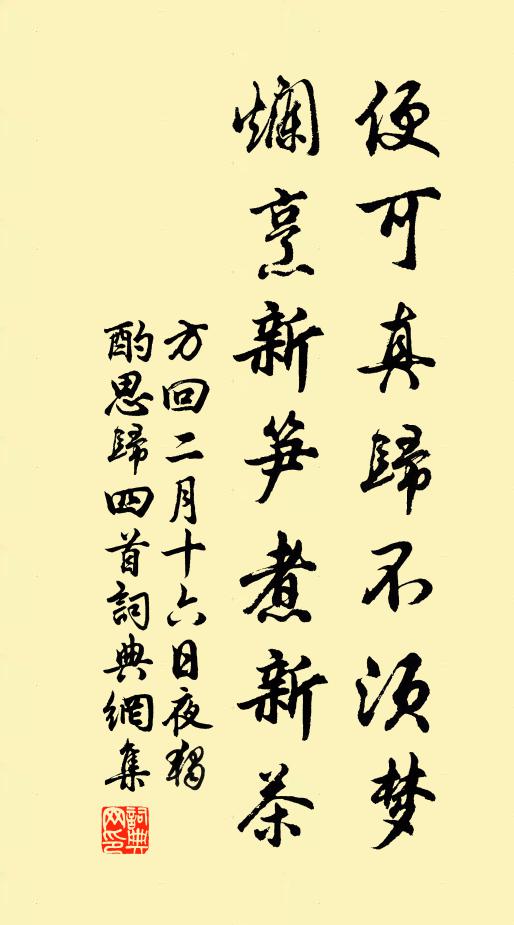 便可真歸不須梦
爛烹新笋煮新茶
方回二月十六日夜獨
酌思歸四首詞典網集
詞典
网印